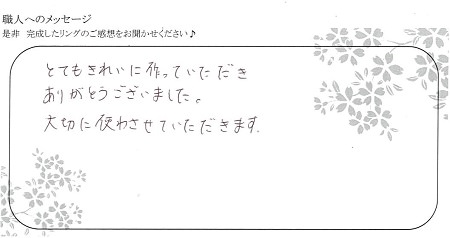 職人へのメッセージ
是非 完成したリングのご感想をお聞かせください♪
とてもきれいに作っていただき
ありがとうございました。
大切に使わさせていただきます.